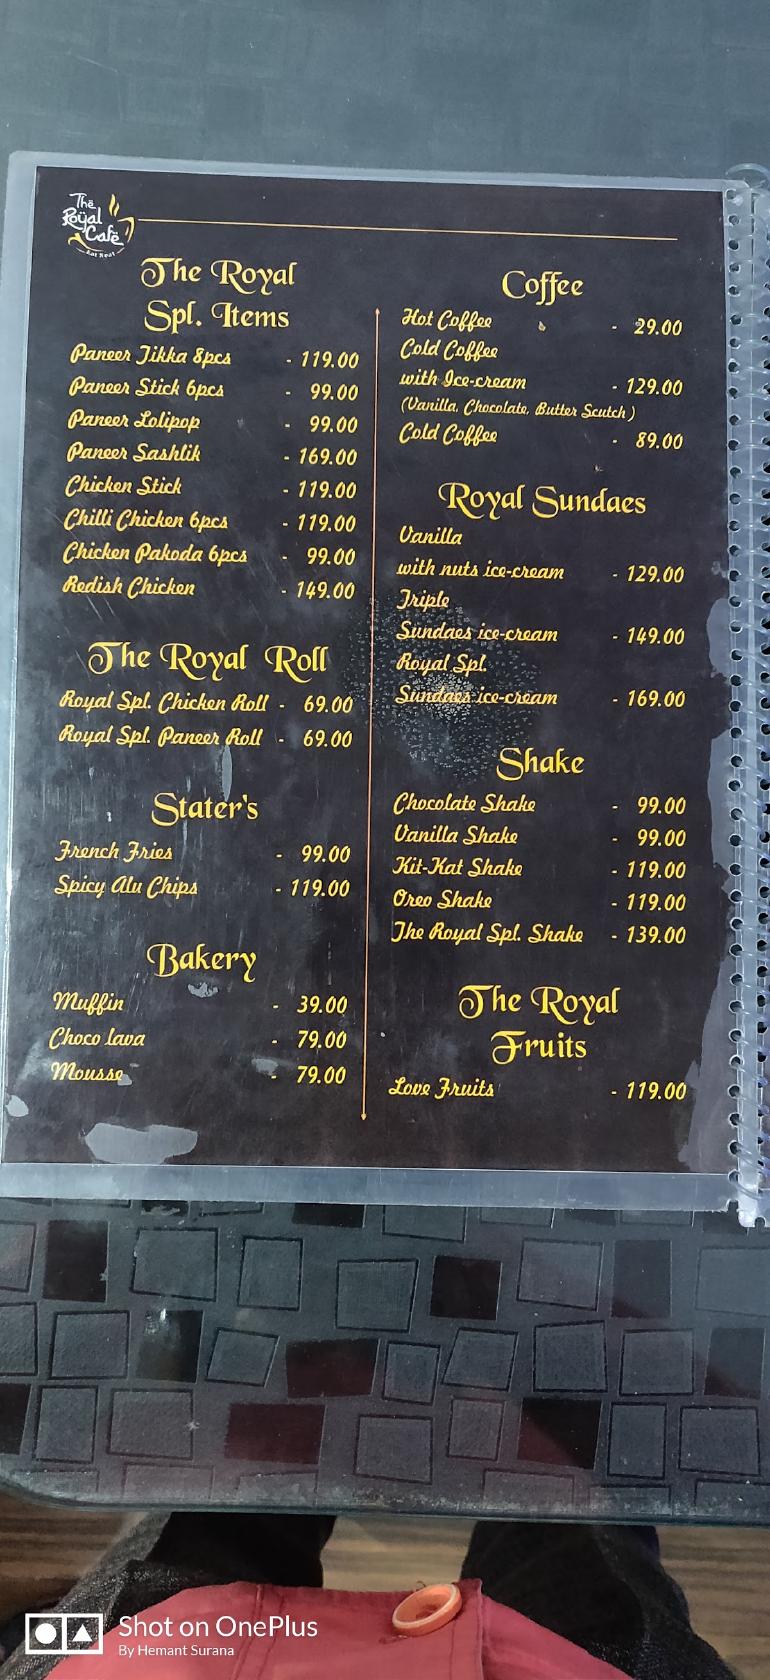 The
Royal
Cafe
Eat Real
The Royal
Spl. Items
Paneer Tikka 8pcs - 119.00
Paneer Stick 6pcs - 99.00
Paneer Lolipop - 99.00
Paneer Sashlik - 169.00
Chicken Stick - 119.00
Chilli Chicken 6pcs - 119.00
Chicken Pakoda 6pcs - 99.00
Redish Chicken - 149.00
The Royal Roll
Royal Spl. Chicken Roll - 69.00
Royal Spl. Paneer Roll - 69.00
Stater's
French Fries - 99.00
Spicy Alu Chips - 119.00
Bakery
Muffin - 39.00
Choco lava - 79.00
Mousse - 79.00
Coffee
Hot Coffee - 29.00
Cold Coffee
with Ice-cream - 129.00
(Vanilla, Chocolate, Butter Scutch)
Cold Coffee - 89.00
Royal Sundaes
Vanilla
with nuts ice-cream - 129.00
Triple
Sundaes ice-cream - 149.00
Royal Spl.
Sundaes ice-cream - 169.00
Shake
Chocolate Shake - 99.00
Vanilla Shake - 99.00
Kit-Kat Shake - 119.00
Oreo Shake - 119.00
The Royal Spl. Shake - 139.00
The Royal
Fruits
Love Fruits - 119.00
Shot on OnePlus
By Hemant Surana